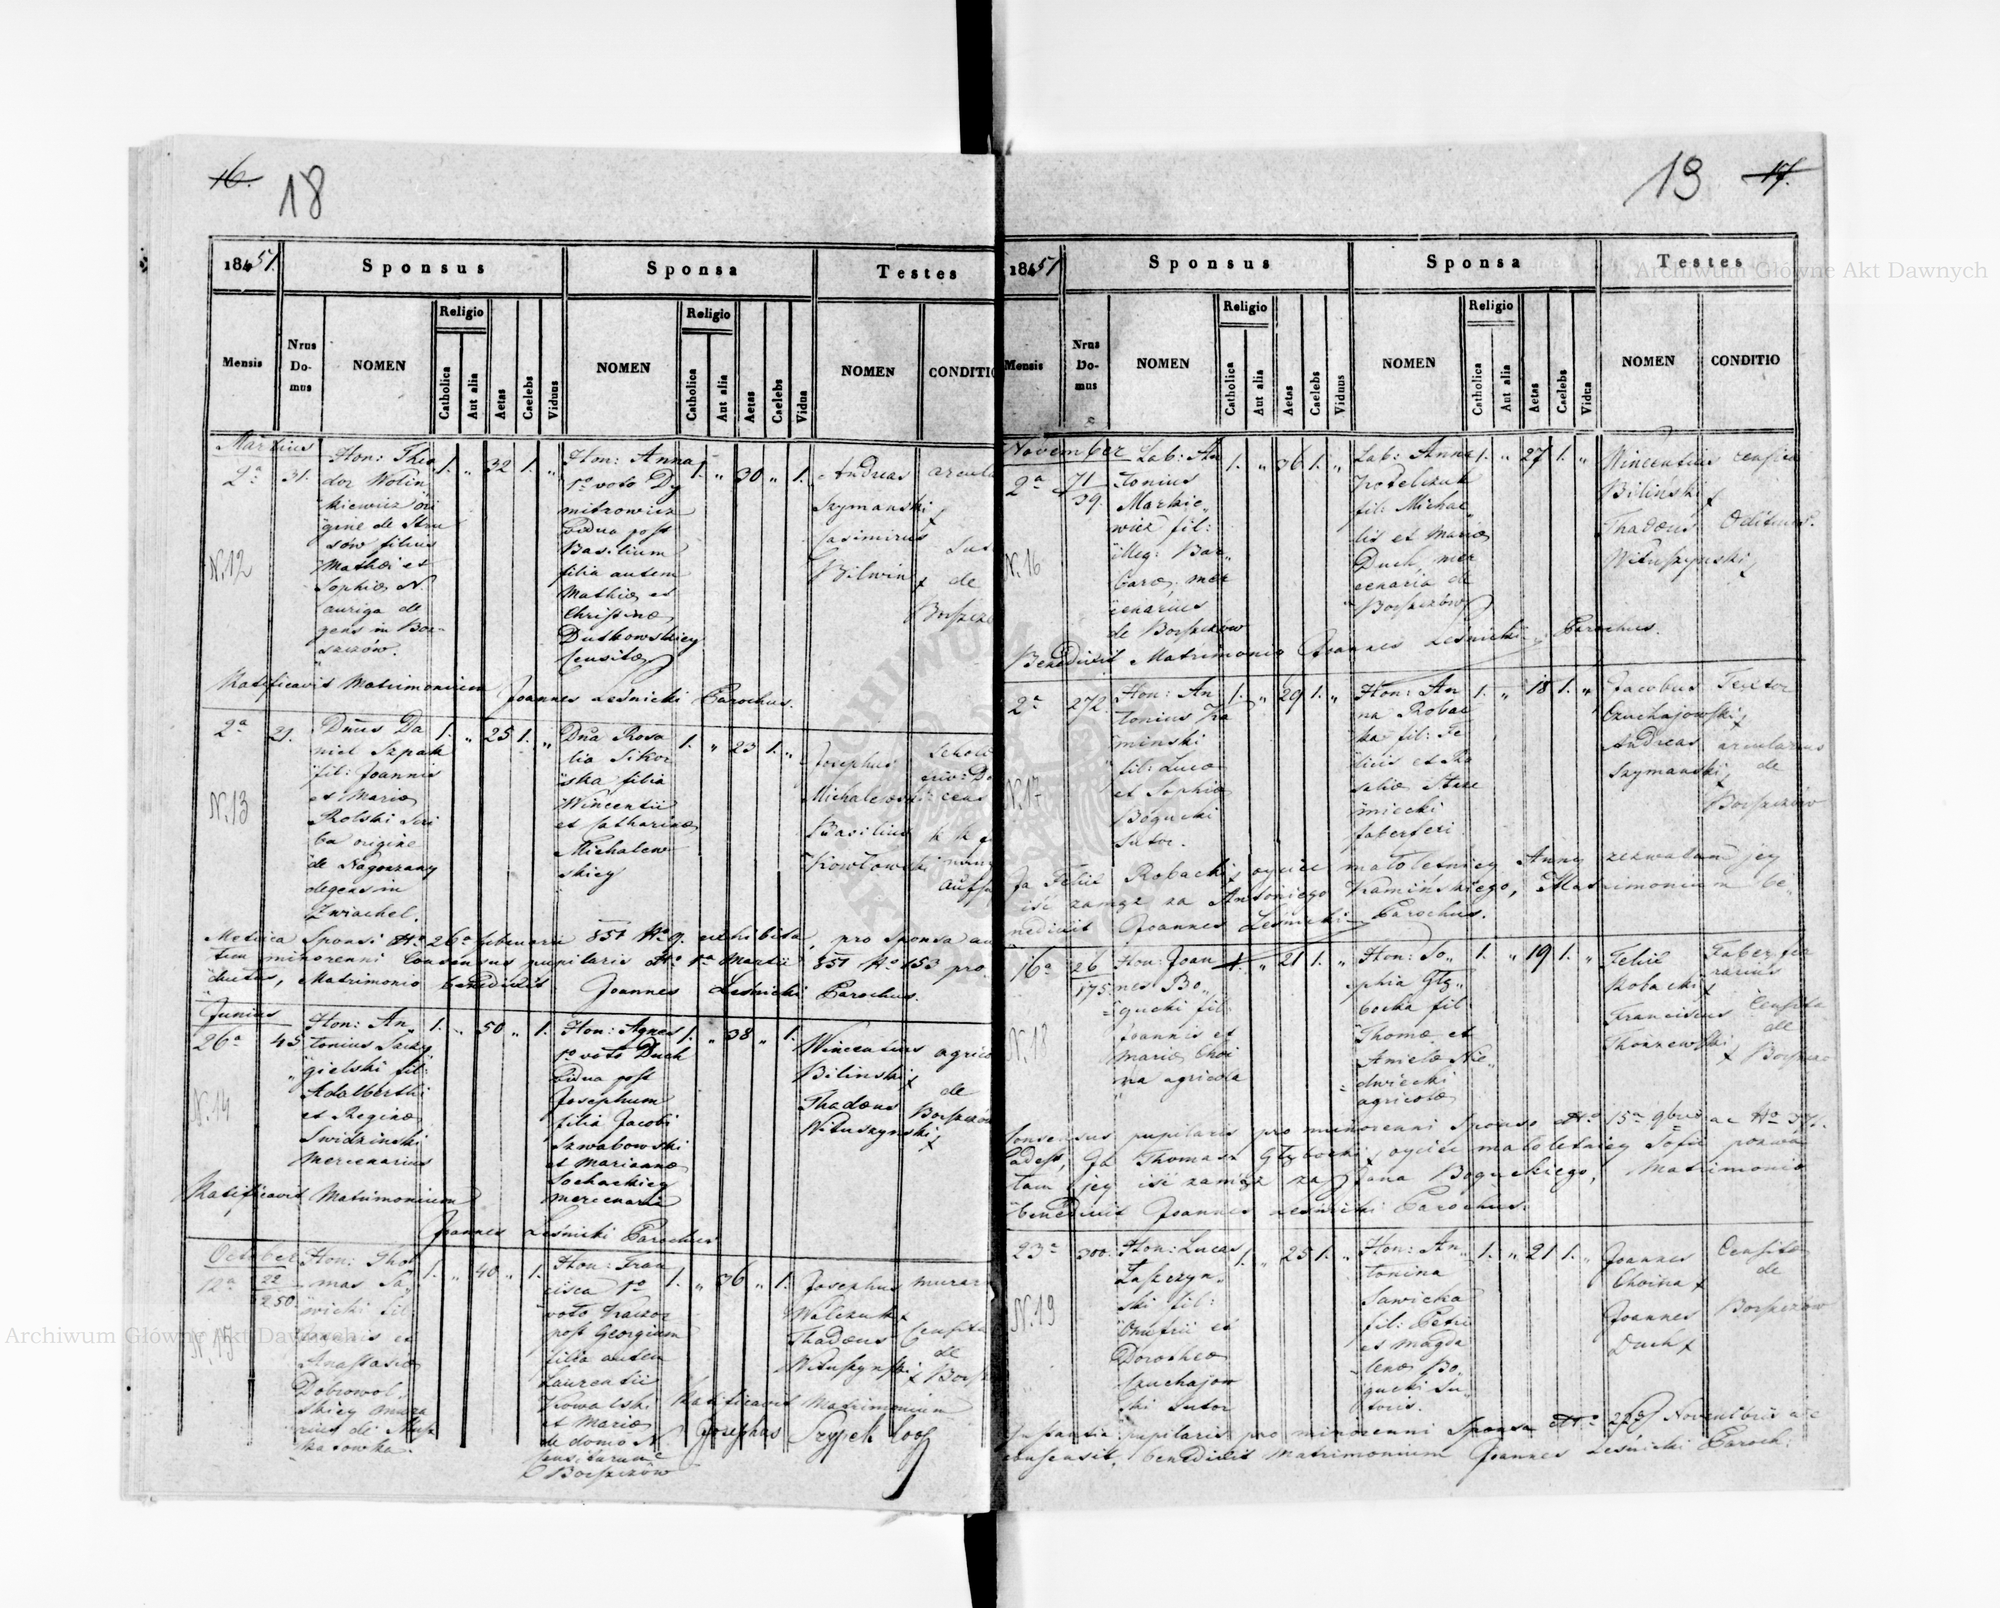 16.
18
1851.
Sponsus
Sponsa
Testes
Mensis
Nrus Do-mus
NOMEN
Religio
Catholica
Aut alia
Aetas
Caelebs
Viduus
NOMEN
Religio
Catholica
Aut alia
Aetas
Caelebs
Vidua
NOMEN
CONDITIO
Martius
2a
31.
N.12
Hon: Theo
dor Wolin
kiewicz ori
gine de Stru
sów filius
Mathæi et
Sophiæ N.
auriga de
gens in Bor-
szczów.
1. " 32 1. "
Hon: Anna
1o voto Dy
mitrowicz
vidua post
Basilium
filia autem
Mathiæ et
Christinæ
Dutkowskiey
censitæ
1. " 30 " 1.
Andreas
Szymanski
Casimirus
Bilwin
de
Ratificavit Matrimonium Joannes Leśnicki Parochus.
2a
21.
N.13
Dnus Da
niel Szpak
fil: Joannis
et Mariæ
Rolski Scri
ba origine
de Nagorzany
degens in
Zwiachel.
1. " 25 1. "
Dna Rosa
lia Sikor
ska filia
Wincentii
et Catharinæ
Michalew
skiey
1. " 23 1. "
Josephus
Michalewski
Basilius
Metrica Sponsi 26a februarii 851 No 9. exhibita, pro Sponsa au
tem minorenni Consensus pupilaris 1a Martii 851 No 153 pro
ductus, Matrimonio benedixit Joannes Leśnicki Parochus.
Junius
26a
45
N.14
Hon: An
tonius
gielski fil:
Adalberti
et Reginæ
Swidzinski
mercenarius
1. " 50 " 1.
Hon: Agnes
1o voto Duch
vidua post
Josephum
filia Jacobi
Szwabowski
et Mariannæ
Sochackiey
mercenaria
1. " 38 " 1.
Wincentius
Bilinski
Thadæus
Wituszynski
agrico
de
Borszczów
Ratificavit Matrimonium
Joannes Leśnicki Parochus
October
12a
22
250
N.15
Hon: Tho
mas Sa
wicki fil:
Joannis et
Anastasiæ
Dobrowol
skiey mura
rius de
1. " 40 " 1.
Hon: Fran
cisca 1o
voto
post Georgium
filia autem
Laurentii
Kowalski
et Mariæ
de domo N
Borszczów
1. " 36 " 1.
Josephus
Walczuk
Thadæus
Wituszynski
murar
Censitæ
de
Ratificavit Matrimonium
Josephus Szypek Coop
19
17.
1851
Sponsus
Sponsa
Testes
Mensis
Nrus Do-mus
NOMEN
Religio
Catholica
Aut alia
Aetas
Caelebs
Viduus
NOMEN
Religio
Catholica
Aut alia
Aetas
Caelebs
Vidua
NOMEN
CONDITIO
November
2a
71
39.
N.16
Lab: An
tonius
Markie
wicz fil:
illeg: Bar
baræ, mer
cenarius
de Borszczów
1. " 36 1. "
Lab: Anna
fil: Michae
lis et Mariæ
Duch, mer
cenaria de
Borszczów
1. " 27 1. "
Wincentius
Biliński
Thadæus
Wituszynski
Benedixit Matrimonio Joannes Leśnicki Parochus.
2a
272
N.17
Hon: An
tonius Ka
minski
fil: Lucæ
et Sophiæ
Bogucki
Sutor.
1. " 29 1. "
Hon: An
na Robac
ka fil: Fe
licis et Ro
saliæ
miecki
fabri feri.
1. " 18 1. "
Jacobus
Czuchajowski
Andreas
Szymanski
Textor
arcularius
de
Borszczów
Ja Felix Robacki, oyciec małoletniey Anny zezwalam jey
iść zamąż za Antoniego Kamińskiego, Matrimonium be
nedixit Joannes Leśnicki Parochus.
16a
26
175
N.18
Hon: Joan
nes Bo
gucki fil:
Joannis et
Mariæ Choi
na agricola
1. " 21 1. "
Hon: So
phia Głę
bocka fil:
Thomæ et
Anielæ Nie
dwiecki
agricolæ
1. " 19 1. "
Felix
Robacki
Franciscus
Thorzewski
Faber fer
rarius
Censitæ
de
Consensus pupilaris pro minorenni Sponso 15a 9bris ac No 371.
adest, Ja Thomasz Głębocki, oyciec małoletniey Sofii pozwa
lam jey iść zamąż za Jana Boguckiego, Matrimonio
benedixit Joannes Leśnicki Parochus.
23a
300.
N.19
Hon: Lucas
Łapczyn
ski fil:
Onufrii et
Dorotheæ
Czuchajow
ski Sutor
1. " 25 1. "
Hon: An
tonina
Sawicka
fil: Petri
et Magda
lenæ Bo
gucki Su
toris.
1. " 21 1. "
Joannes
Choina
Joannes
Duch
Censitæ
de
Borszczów
pupilaris pro minorenni Sponsa Novembris
benedixit Matrimonium Joannes Leśnicki Paroch:
Archiwum Główne Akt Dawnych
Archiwum Główne Akt Dawnych